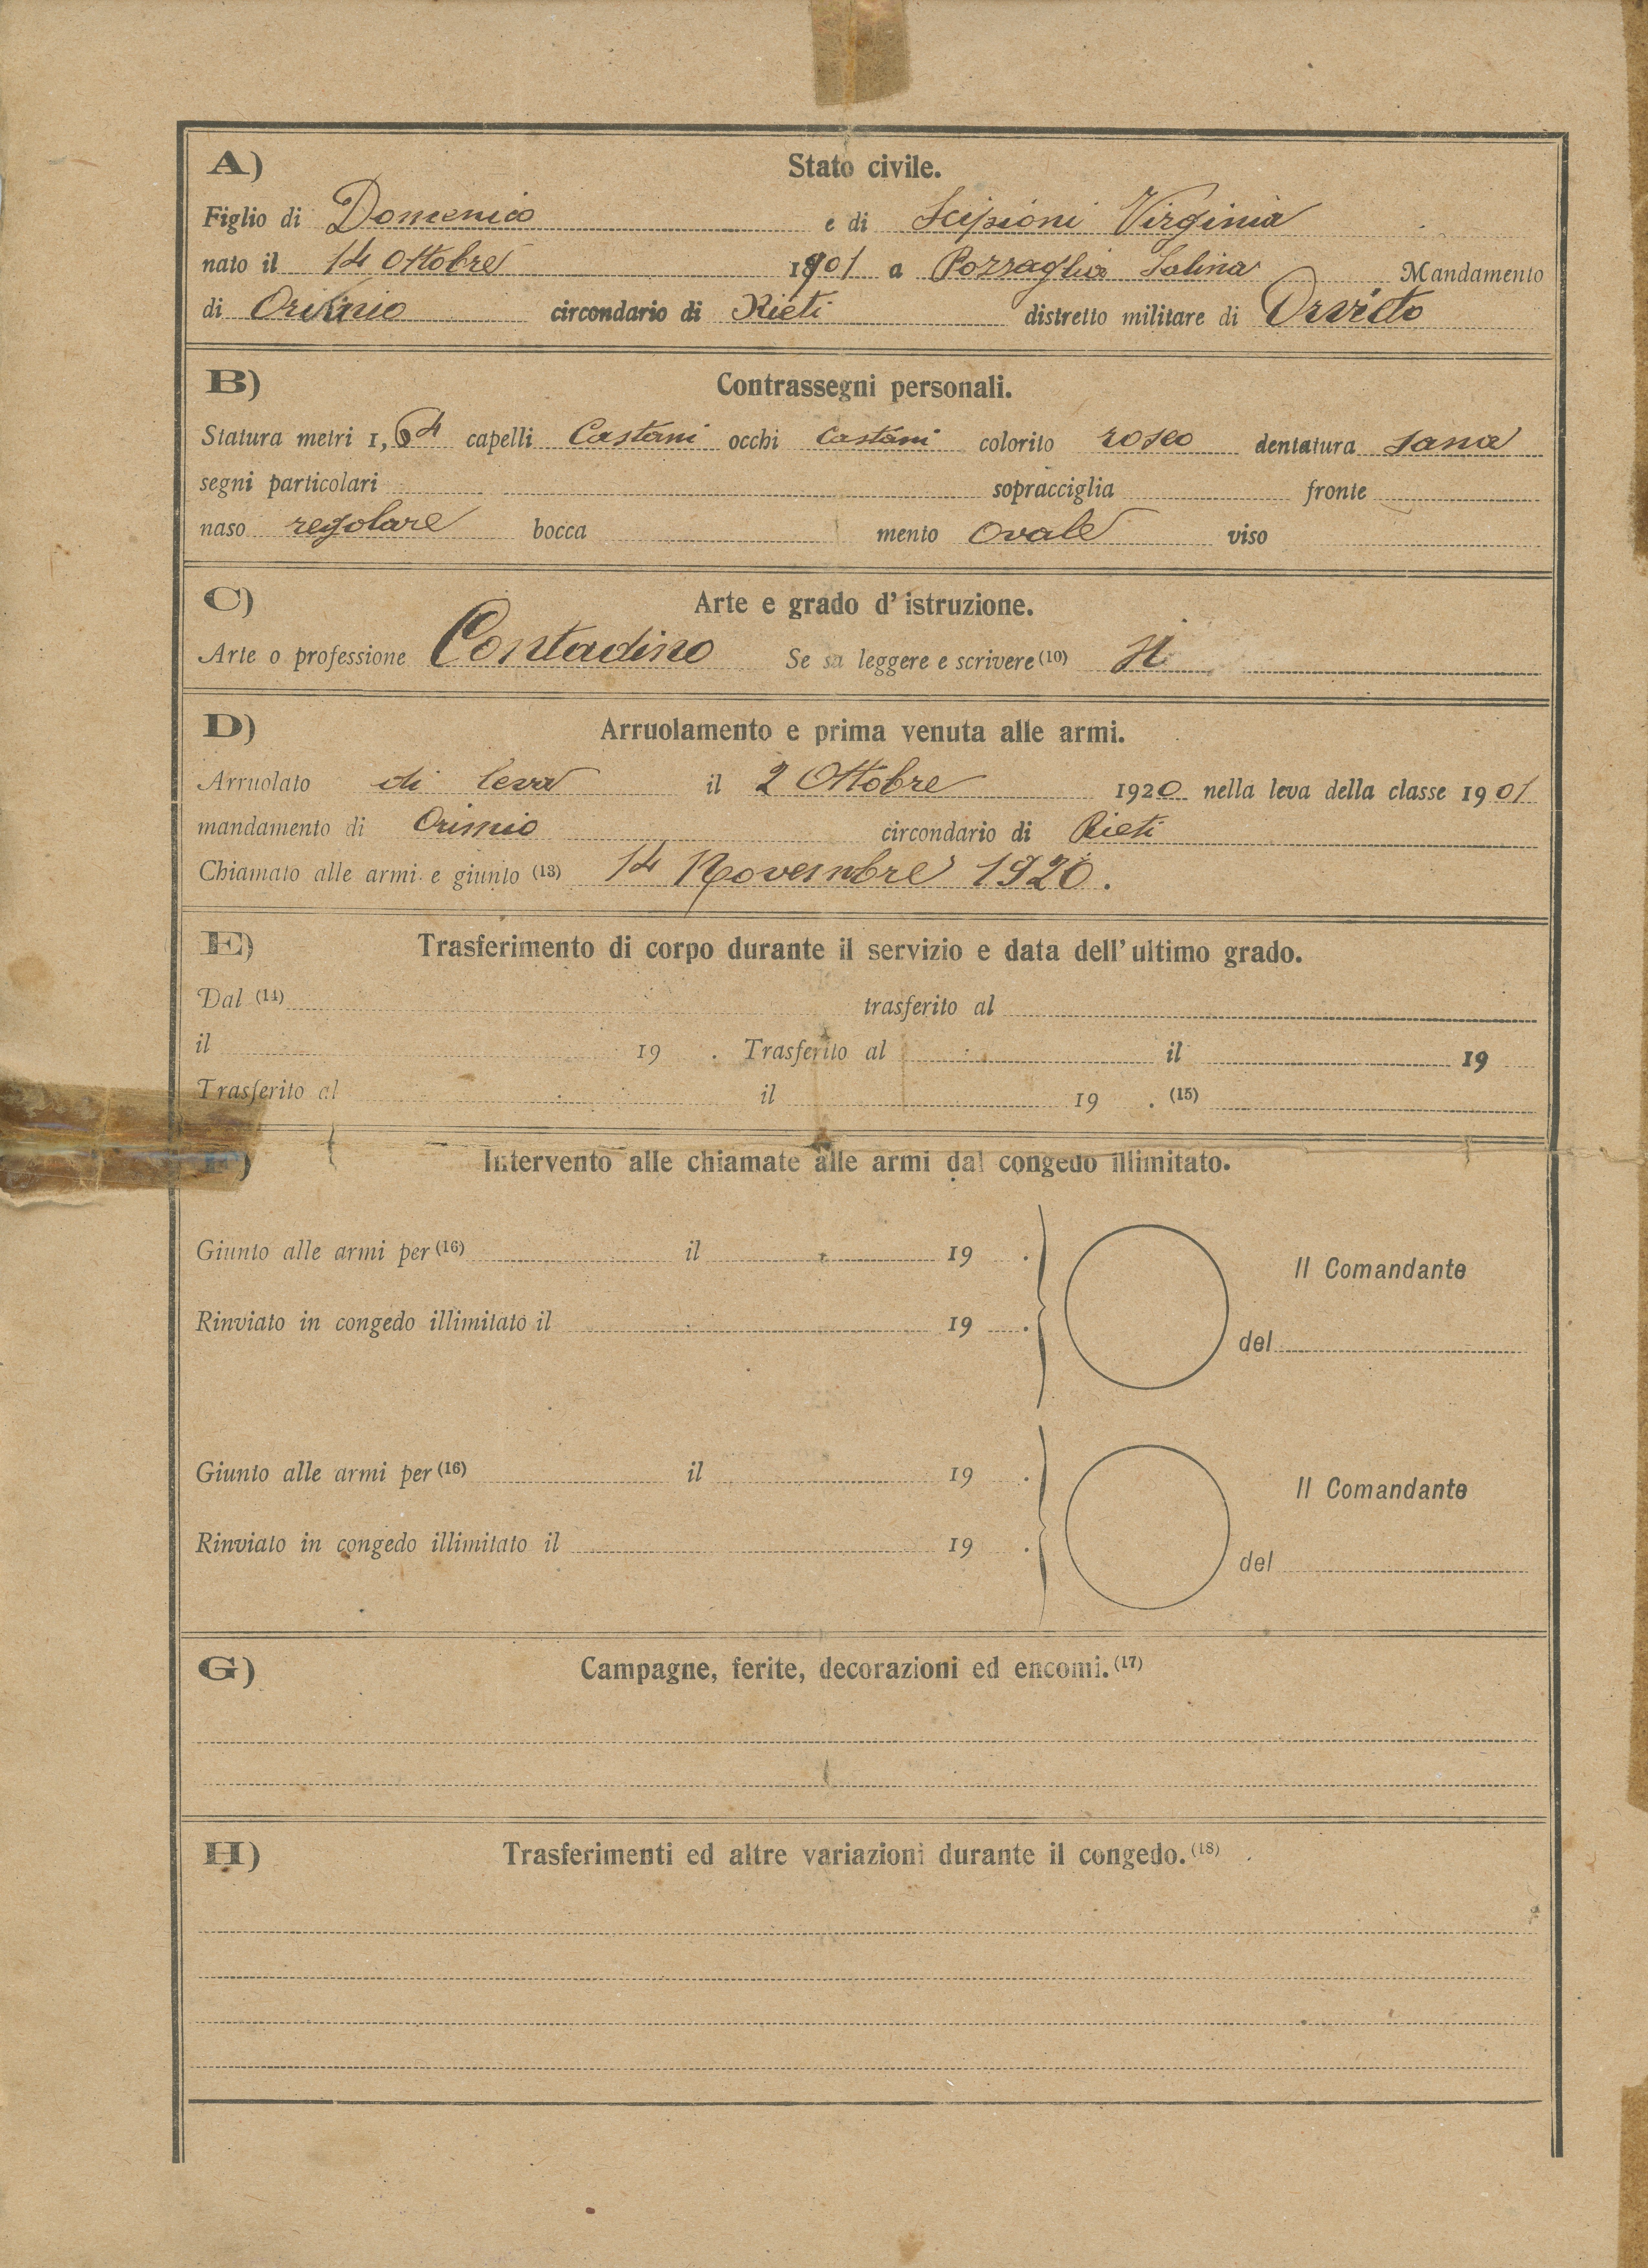 A) Stato civile.
Figlio di Domenico e di Scipioni Virginia
nato il 14 Ottobre 1901 a Pozzaglia Sabina Mandamento
di circondario di Rieti distretto militare di Orvieto
B) Contrassegni personali.
Statura metri 1,64 capelli Castani occhi Castani colorito roseo dentatura sana
segni particolari sopracciglia fronte
naso regolare bocca mento Ovale viso
C) Arte e grado d'istruzione.
Arte o professione Contadino Se sa leggere e scrivere (10) si
D) Arruolamento e prima venuta alle armi.
Arruolato di leva il 2 Ottobre 1920 nella leva della classe 1901
mandamento di Orinio circondario di Rieti
Chiamato alle armi e giunto (13) 14 Novembre 1920.
E) Trasferimento di corpo durante il servizio e data dell'ultimo grado.
Dal (14) trasferito al
il 19 . Trasferito al il 19
Trasferito al il 19 . (15)
F) Intervento alle chiamate alle armi dal congedo illimitato.
Giunto alle armi per (16) il 19 .
Il Comandante
Rinviato in congedo illimitato il 19 .
del
Giunto alle armi per (16) il 19 .
Il Comandante
Rinviato in congedo illimitato il 19 .
del
G) Campagne, ferite, decorazioni ed encomi. (17)
H) Trasferimenti ed altre variazioni durante il congedo. (18)